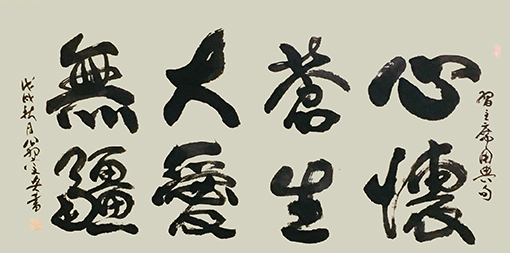 習主席用典句
心懷
蒼生
大愛
無疆
戊戌秋月
書